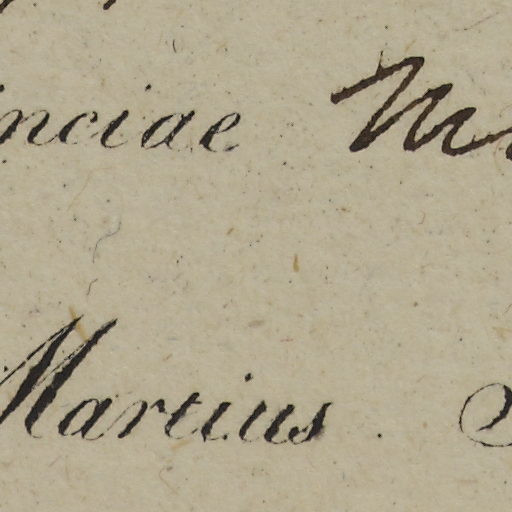 inciae M
Martius. S